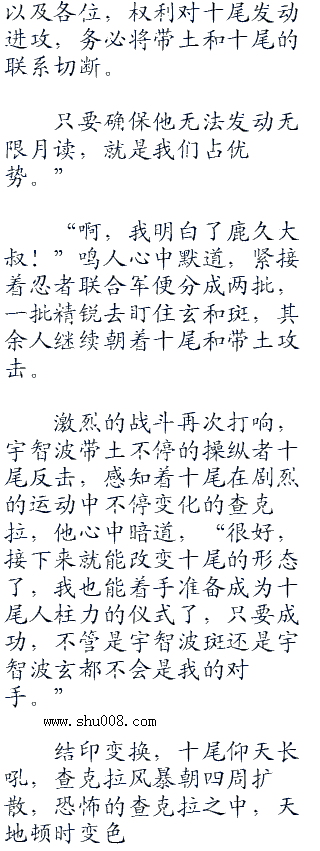 以及各位，权利对十尾发动
进攻，务必将带土和十尾的
联系切断。
只要确保他无法发动无
限月读，就是我们占优
势。”
“啊，我明白了鹿久大
叔！”鸣人心中默道，紧接
着忍者联合军便分成两批，
一批精锐去盯住玄和斑，其
余人继续朝着十尾和带土攻
击。
激烈的战斗再次打响，
宇智波带土不停的操纵者十
尾反击，感知着十尾在剧烈
的运动中不停变化的查克
拉，他心中暗道，“很好，
接下来就能改变十尾的形态
了，我也能着手准备成为十
尾人柱力的仪式了，只要成
功，不管是宇智波斑还是宇
智波玄都不会是我的对
手。”
www.shu008.com
结印变换，十尾仰天长
吼，查克拉风暴朝四周扩
散，恐怖的查克拉之中，天
地顿时变色